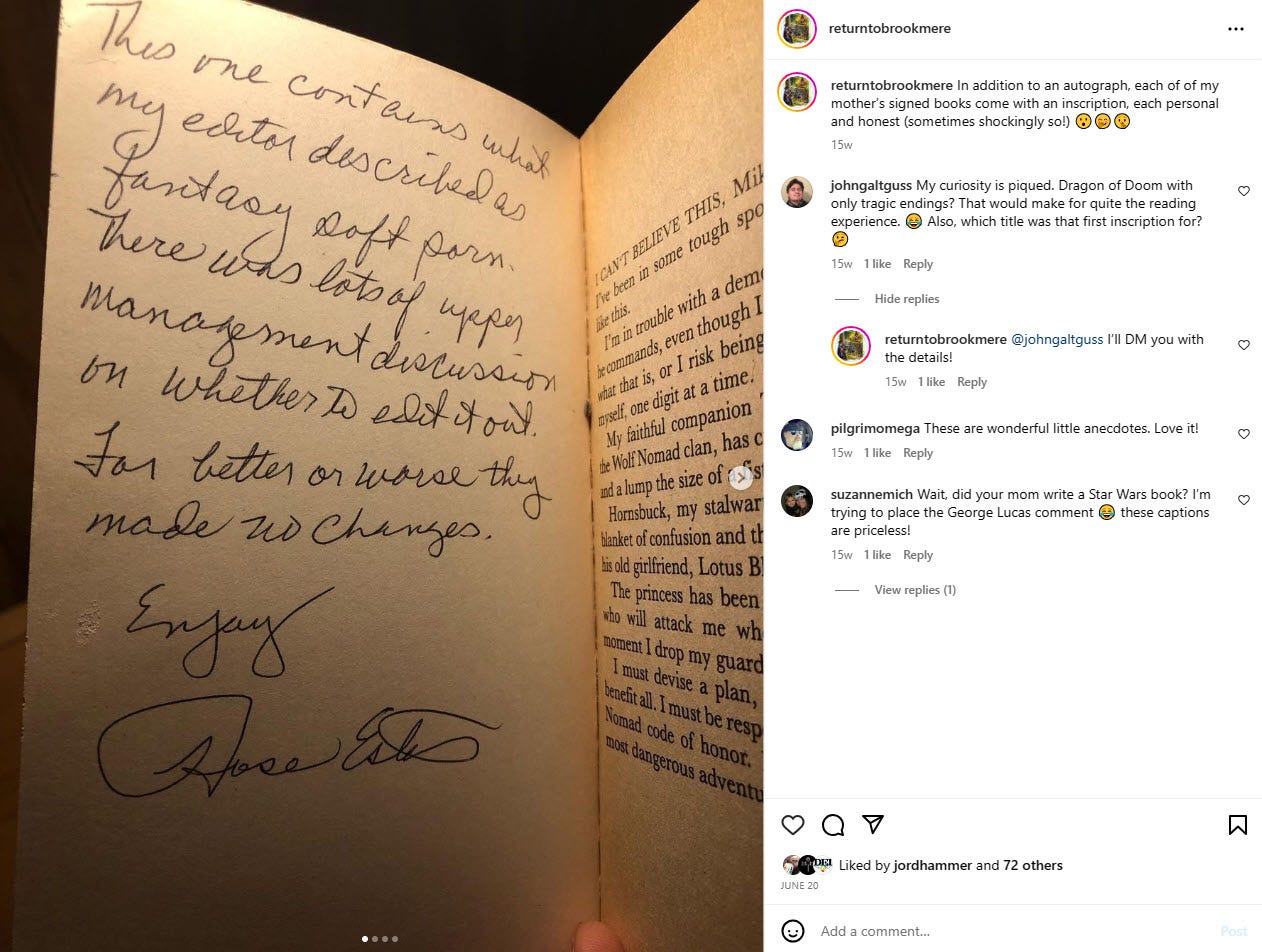 This one contains what
my editor described as
fantasy soft porn.
There was lots of upper
management discussion
on whether to edit it out.
For better or worse they
made no changes.
Enjoy
Rose Estes
I CAN'T BELIEVE THIS, Mik
I've been in some tough spo
like this.
I'm in trouble with a demo
he commands, even though I
what that is, or I risk being
myself, one digit at a time.
My faithful companion
the Wolf Nomad clan, has c
and a lump the size of a fist
Hornsbuck, my stalwar
blanket of confusion and th
his old girlfriend, Lotus Bl
The princess has been
who will attack me wh
moment I drop my guard
I must devise a plan,
benefit all. I must be resp
Nomad code of honor.
most dangerous adventu
returntobrookmere
returntobrookmere In addition to an autograph, each of of my
mother's signed books come with an inscription, each personal
and honest (sometimes shockingly so!) 😮😊🤫
15w
johngaltguss My curiosity is piqued. Dragon of Doom with
only tragic endings? That would make for quite the reading
experience. 😂 Also, which title was that first inscription for?
🤔
15w 1 like Reply
Hide replies
returntobrookmere @johngaltguss I'll DM you with
the details!
15w 1 like Reply
pilgrimomega These are wonderful little anecdotes. Love it!
15w 1 like Reply
suzannemich Wait, did your mom write a Star Wars book? I'm
trying to place the George Lucas comment 😂 these captions
are priceless!
15w 1 like Reply
View replies (1)
Liked by jordhammer and 72 others
JUNE 20
Add a comment...
Post